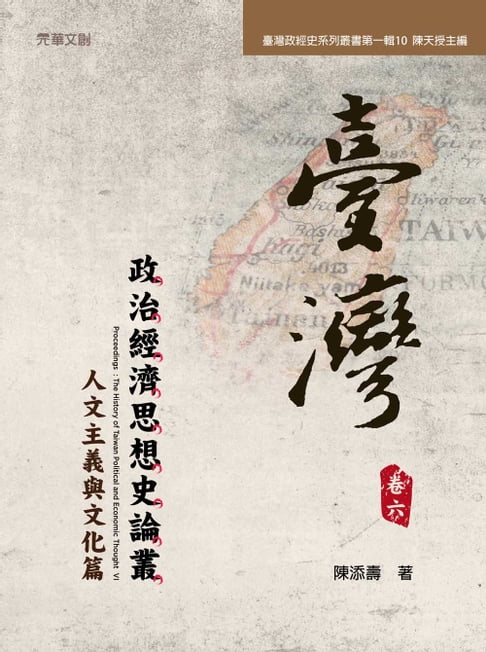 元華文創
臺灣政經史系列叢書第一輯10 陳天授主編
臺灣
政治經濟思想史論叢
Proceedings : The History of Taiwan Political and Economic Thought VI
人文主義與文化篇
卷六
陳添壽 著
TAIW
FORMO
Niitaka yam
4013